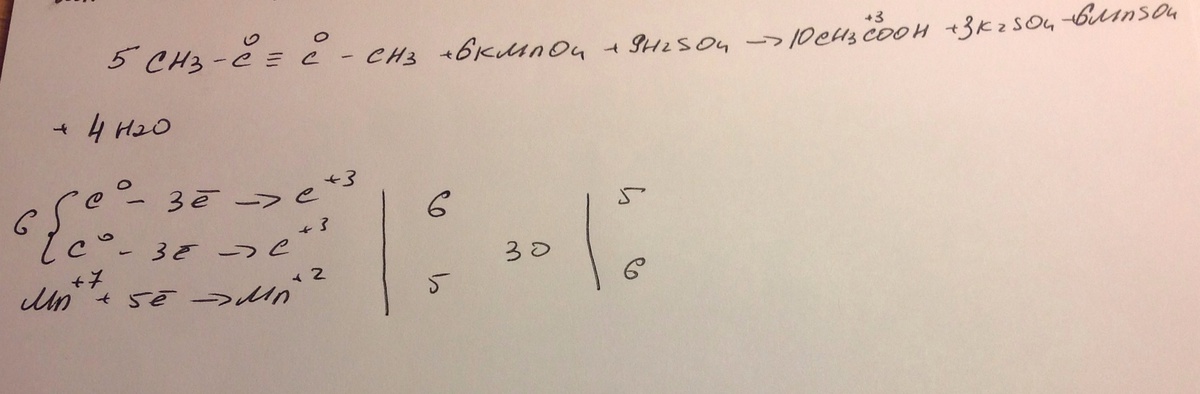 5 CH3 - C⁰ ≡ C⁰ - CH3 + 6KMnO4 + 9H2SO4 → 10CH3C⁺³OOH + 3K2SO4 + 6MnSO4
+ 4H2O
6 { C⁰ - 3ē → C⁺³ | 6 | 5
C⁰ - 3ē → C⁺³ 30
Mn⁺⁷ + 5ē → Mn⁺² | 5 | 6